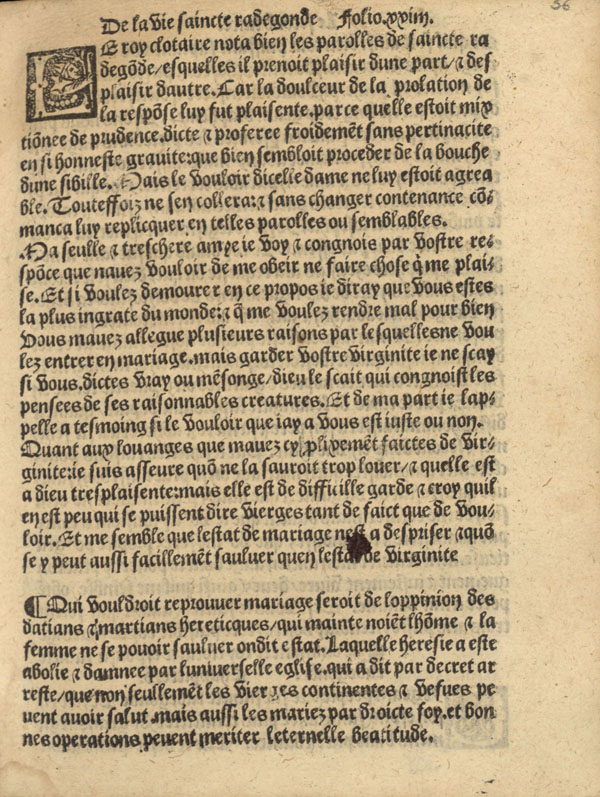 56
De la vie saincte radegonde Folio.xxiiii.
LE roy clotaire nota bien les parolles de saincte ra
degōde/esquelles il prenoit plaisir dune part/⁊ des
plaisir dautre. Car la doulceur de la prolation de
la respōse luy fut plaisente.parce quelle estoit mix
tiōnee de prudence.dicte ⁊ proferee froidemēt sans pertinacite
en si honneste grauite:que bien sembloit proceder de la bouche
dune sibille. Mais le vouloir dicelle dame ne luy estoit agrea
ble. Touteffoiz ne sen collera:⁊ sans changer contenance cō-
manca luy replicquer en telles parolles ou semblables.
Ma seulle ⁊ treschere amye ie voy ⁊ congnois par vostre re-
spōce que nauez vouloir de me obeir ne faire chose q̄ me plai-
se. Et si voulez demourer en ce propos ie diray que vous estes
la plus ingrate du monde:⁊ q̄ me voulez rendre mal pour bien
Vous mauez allegue plusieurs raisons par lesquellesne vou
lez entrer en mariage.mais garder vostre virginite ie ne scay
si vous.dictes vray ou mēsonge/dieu le scait qui congnoist les
pensees de ses raisonnables creatures. Et de ma part ie lap-
pelle a tesmoing si le vouloir que iay a vous est iuste ou non.
Quant aux louanges que mauez cy plixemēt faictes de vir-
ginite:ie suis asseure quō ne la sauroit trop louer/⁊ quelle est
a dieu tresplaisente:mais elle est de difficille garde ⁊ croy quil
en est peu qui se puissent dire vierges tant de faict que de vou-
loir. Et me semble que lestat de mariage nest a despriser ⁊ quō
se y peut aussi facillemēt sauluer quen lestat de virginite
¶ Qui vouldroit reprouuer mariage seroit de loppinion des
datians ⁊ martians hereticques/qui mainte noiēt lhōme ⁊ la
femme ne se pouoir sauluer ondit estat. Laquelle heresie a este
abolie ⁊ damnee par luniuerselle eglise.qui a dit par decret ar
reste/que non seullemēt les vierges continentes ⁊ vefues pe
uent auoir salut.mais aussi les mariez par droicte foy.et bon
nes operations peuent meriter leternelle beatitude.